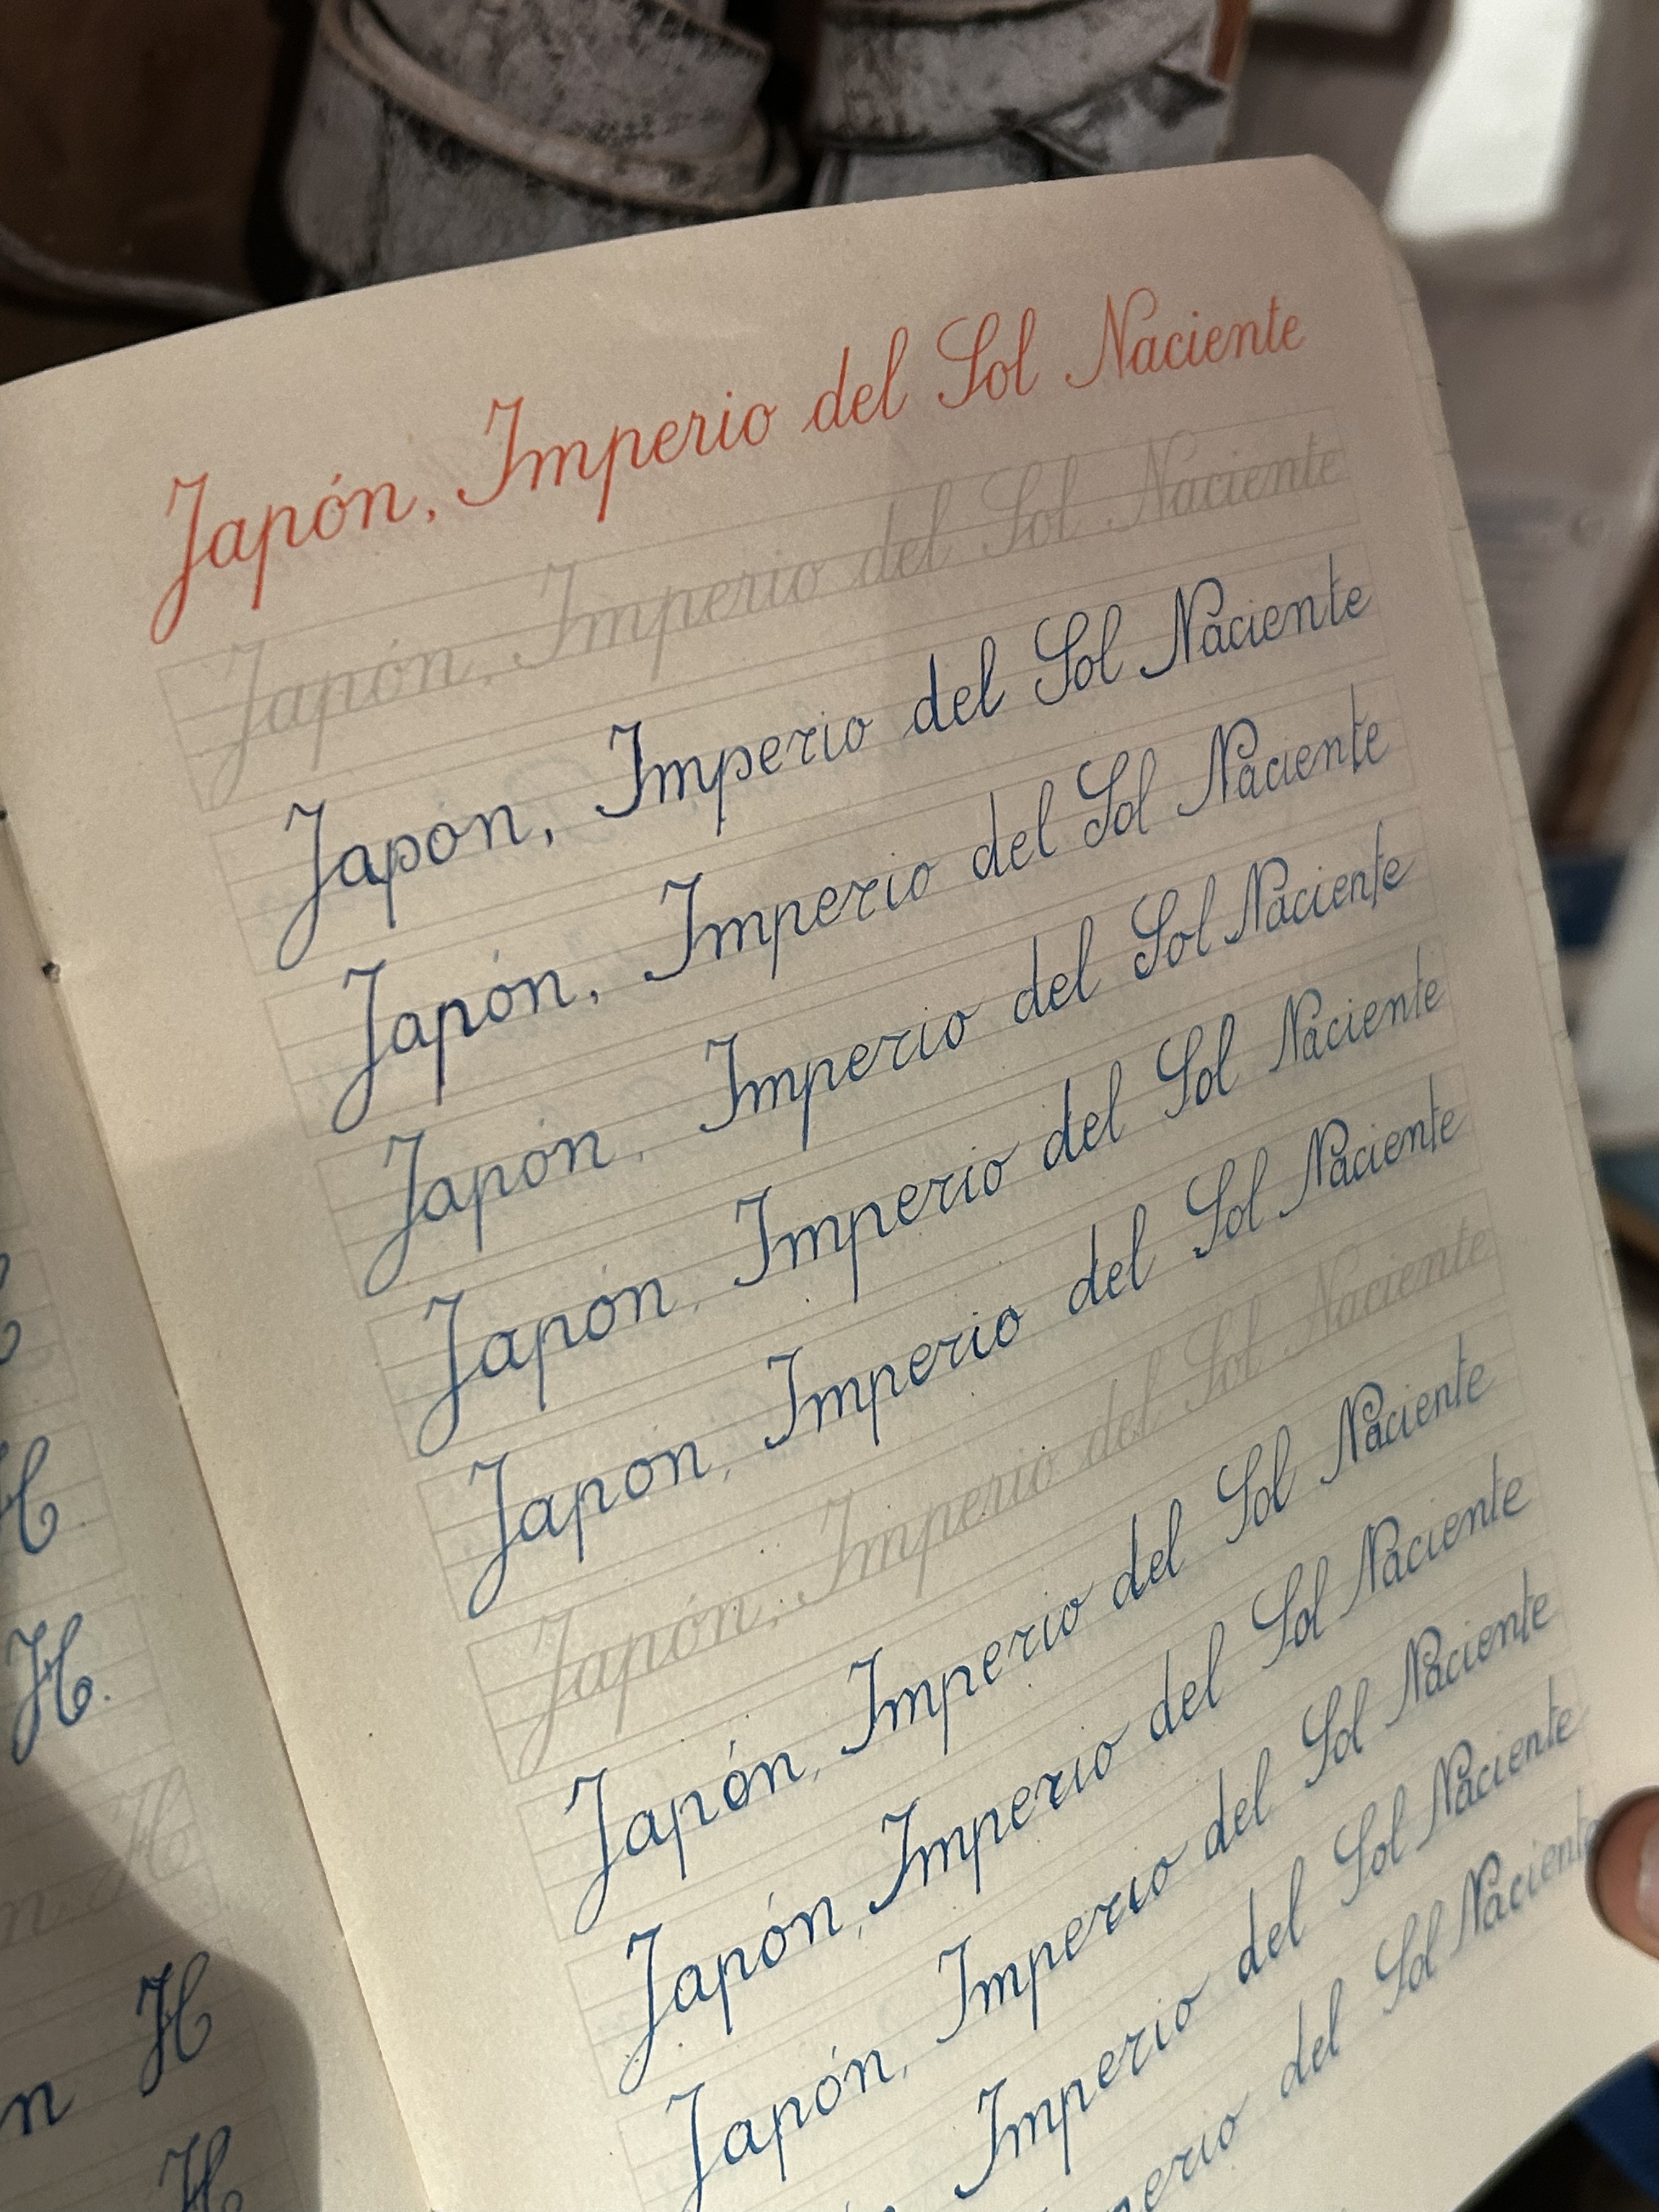 Japón, Imperio del Sol Naciente
Japón, Imperio del Sol Naciente
Japón, Imperio del Sol Naciente
Japón, Imperio del Sol Naciente
Japón, Imperio del Sol Naciente
Japón, Imperio del Sol Naciente
Japón, Imperio del Sol Naciente
Japón, Imperio del Sol Naciente
Japón, Imperio del Sol Naciente
Japón, Imperio del Sol Naciente
Japón, Imperio del Sol Naciente
Imperio del Sol Naciente
del Sol Naciente
H
H.
H
n H
H